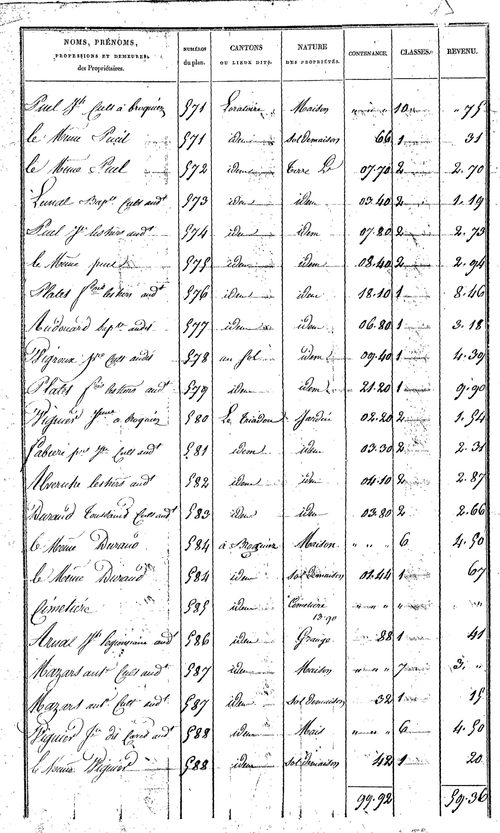 NOMS, PRÉNOMS, PROFESSIONS ET DEMEURES, des Propriétaires. NUMÉROS du plan. CANTONS OU LIEUX DITS. NATURE DES PROPRIÉTÉS. CONTENANCE. CLASSES. REVENU.
Puel Jh Cult à Broquiès 571 Loratoire Maison " " " 10 " 75
le Même Puel 571 idem Sol de maison 66 1 31
le Même Puel 572 idem Terre 07.70 2 2.70
Bapte Cult audt 573 idem idem 03.40 2 1.19
Puel audt 574 idem idem 07.80 2 2.73
le Même Puel 575 idem idem 08.40 2 2.94
Platet audt 576 idem idem 18.10 1 8.46
577 idem idem 06.80 1 3.18
Cult audt 578 idem 09.40 1 4.39
Platet audt 579 idem idem 21.20 1 9.90
Viguier à Broquiès 580 Le Jardin 02.20 2 1.54
audt 581 idem idem 03.30 2 2.31
audt 582 idem idem 04.10 2 2.87
Durand Toussaint Cult audt 583 idem idem 03.80 2 2.66
le Même Durand 584 à Broquiès Maison " " " 6 4.50
le Même Durand 584 idem Sol de maison 01.44 1 67
Cimetière 585 idem Cimetière 13.90 " " " " " "
Arnal Jh audt 586 idem Grange 88 1 41
Mazars ant. Cult audt 587 idem Maison " " " 7 3. "
Mazars ant. Cult audt 587 idem Sol de maison 32 1 15
Viguier audt 588 idem Mais " " " 6 4.50
le Même Viguier 588 idem Sol de maison 42 1 20
99.92 59.36